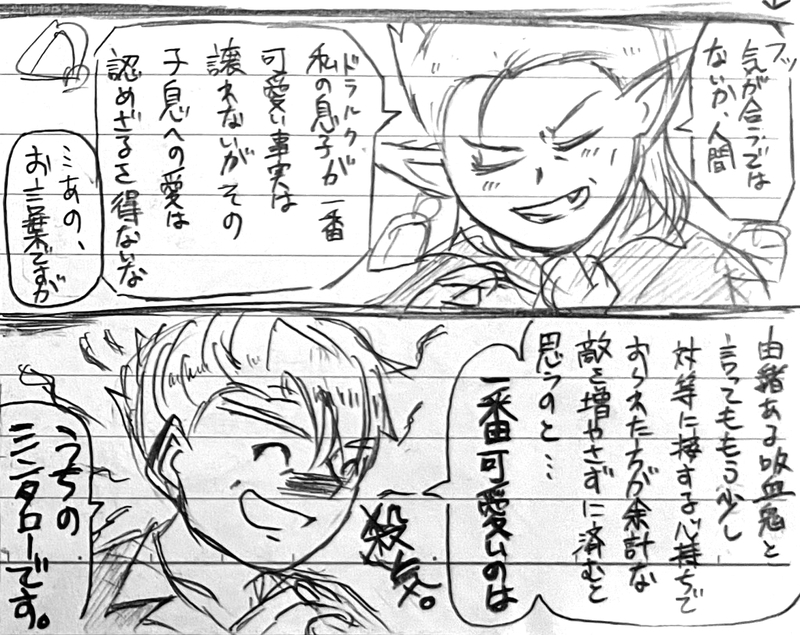 フッ
気が合うでは
ないか、人間
ドラルクが
私の息子が一番
可愛い事実は
譲れないがその
子息への愛は
認めざるを得ないな
…あの、
お言葉ですが
由緒ある吸血鬼と
言ってももう少し
対等に接する心持ちで
おられた方が余計な
敵を増やさずに済むと
思うのと…
一番可愛いのは
殺気。
うちの
ミンタローです。